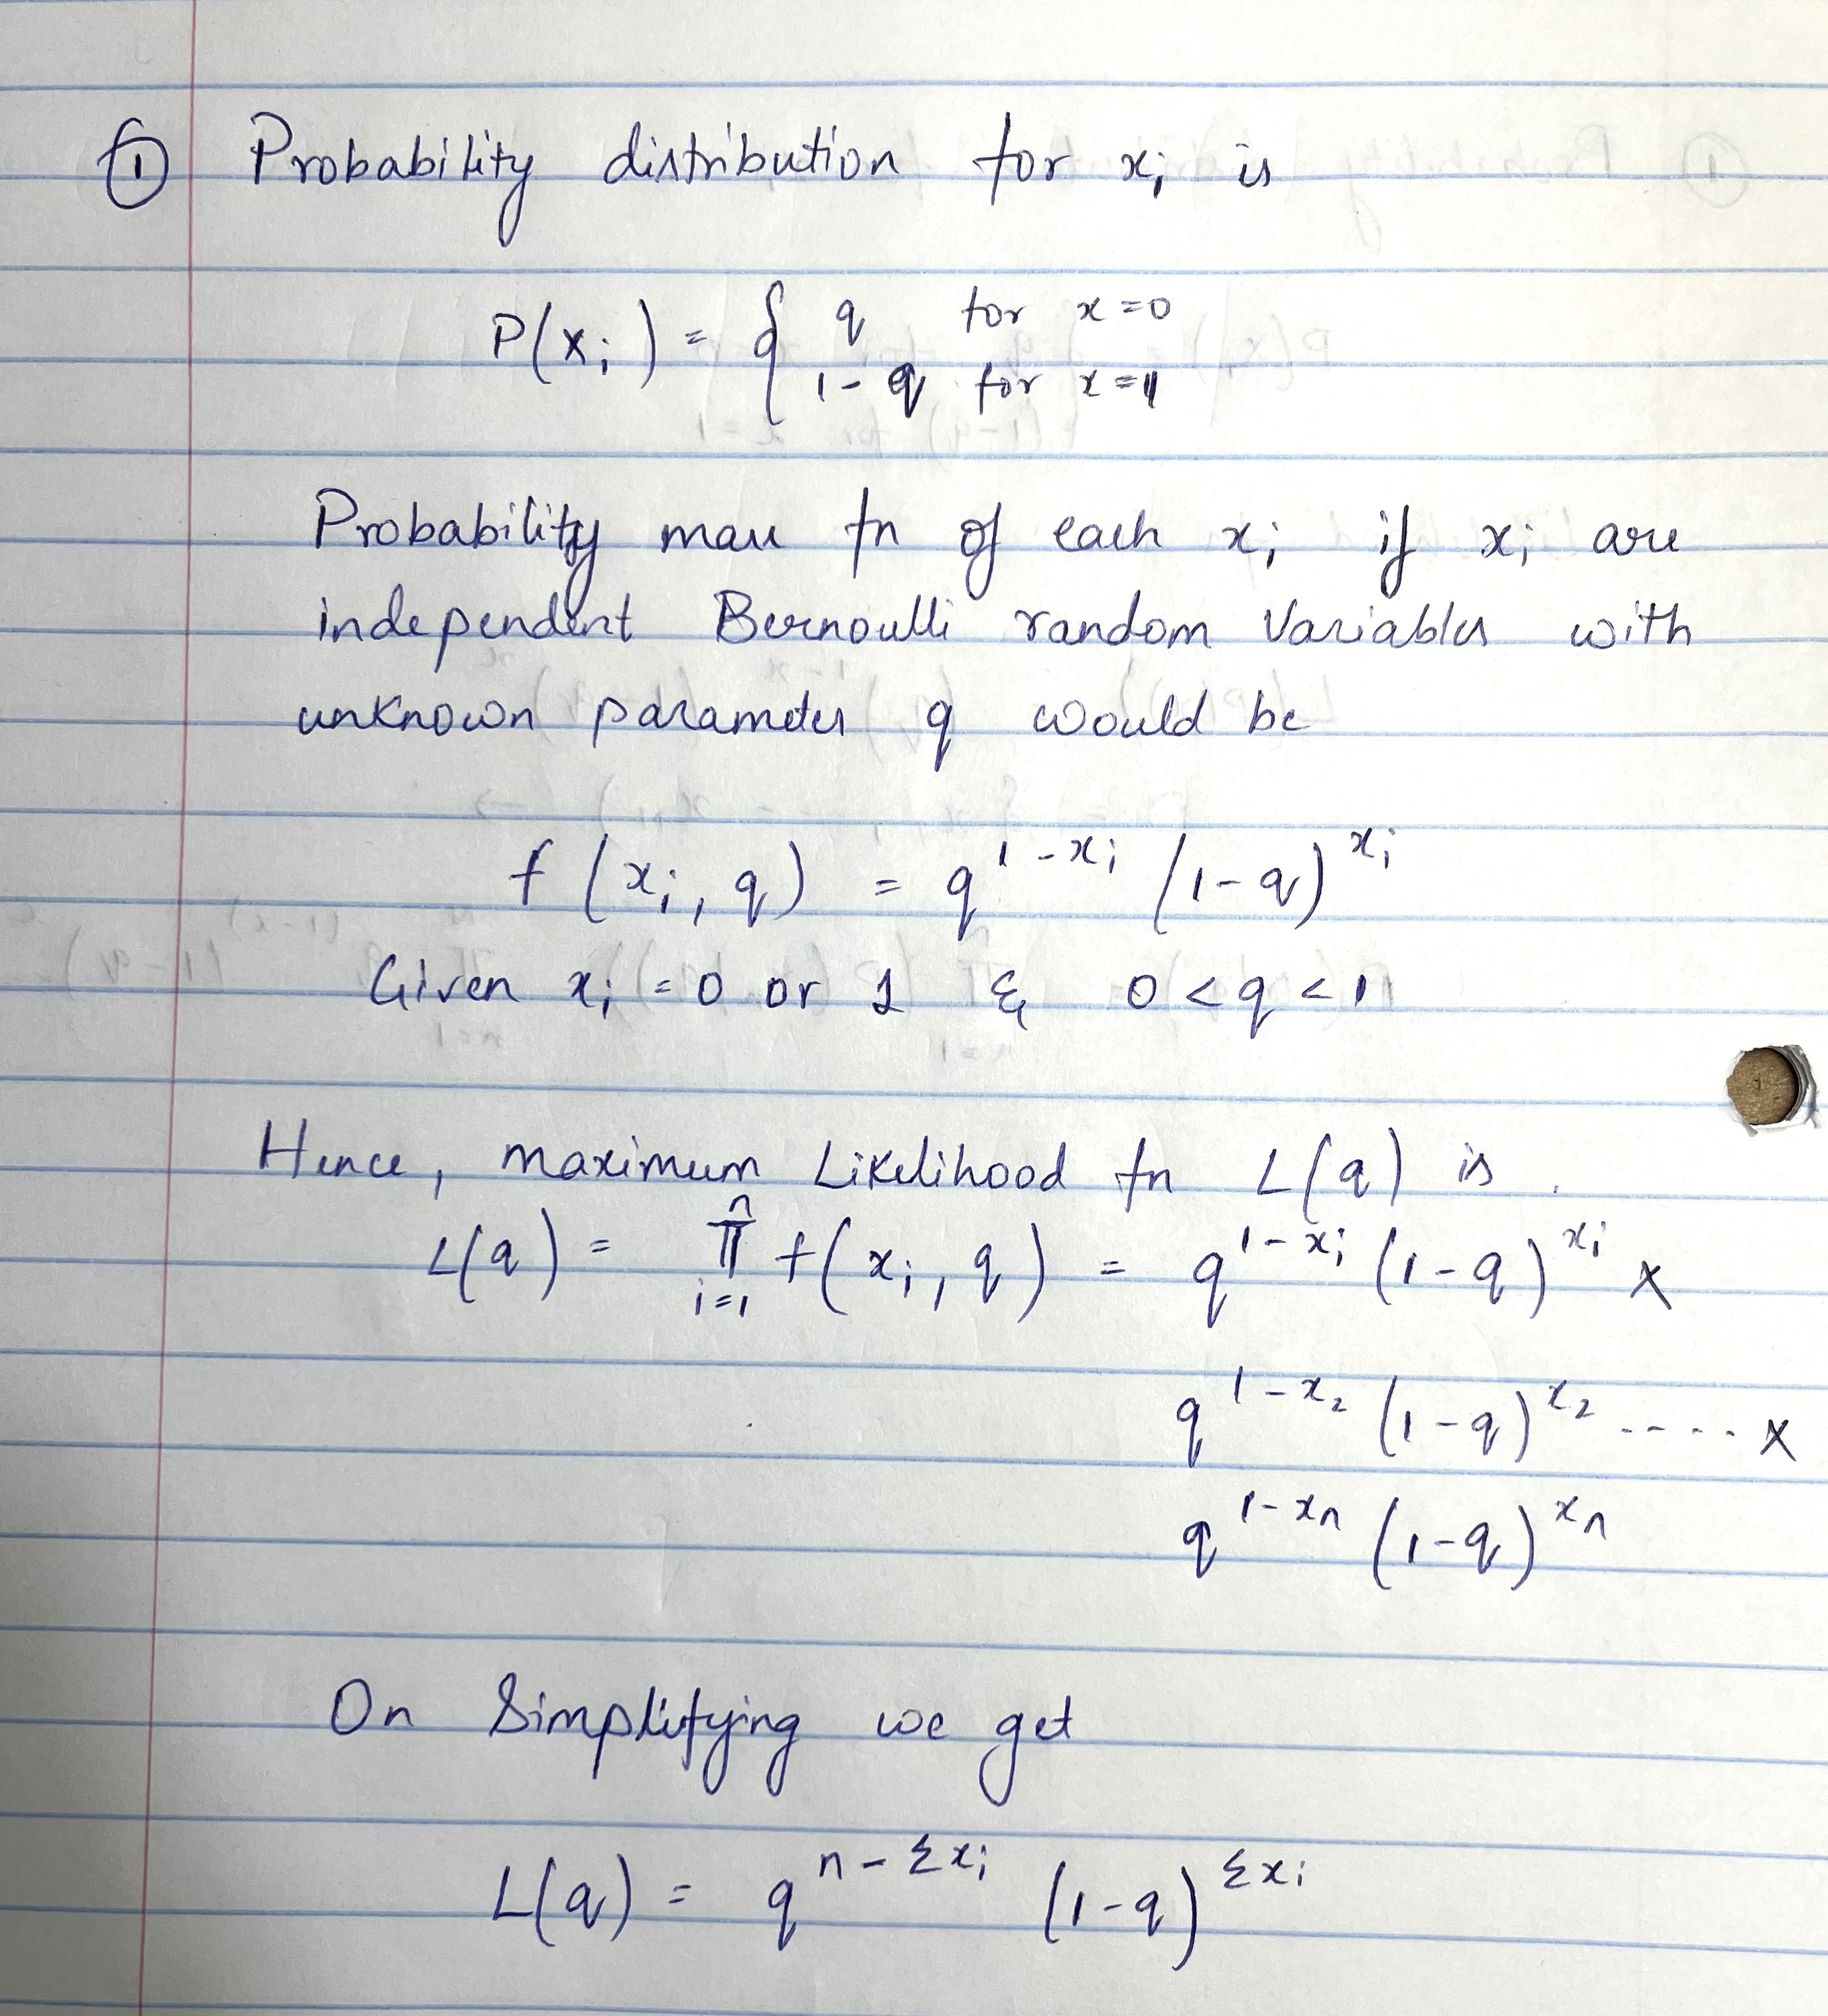 ① Probability distribution for xᵢ is
P(xᵢ) = { q for x = 0
1 - q for x = 1
Probability mass fn of each xᵢ if xᵢ are
independent Bernoulli random variables with
unknown parameter q would be
f (xᵢ, q) = q^(1 - xᵢ) (1 - q)^(xᵢ)
Given xᵢ = 0 or 1 & 0 < q < 1
Hence, maximum Likelihood fn L(q) is
L(q) = ∏_{i=1}^{n} f(xᵢ, q) = q^(1 - xᵢ) (1 - q)^(xᵢ) ×
q^(1 - x₂) (1 - q)^(x₂) ..... ×
q^(1 - xₙ) (1 - q)^(xₙ)
On Simplifying we get
L(q) = q^(n - Σxᵢ) (1 - q)^(Σxᵢ)